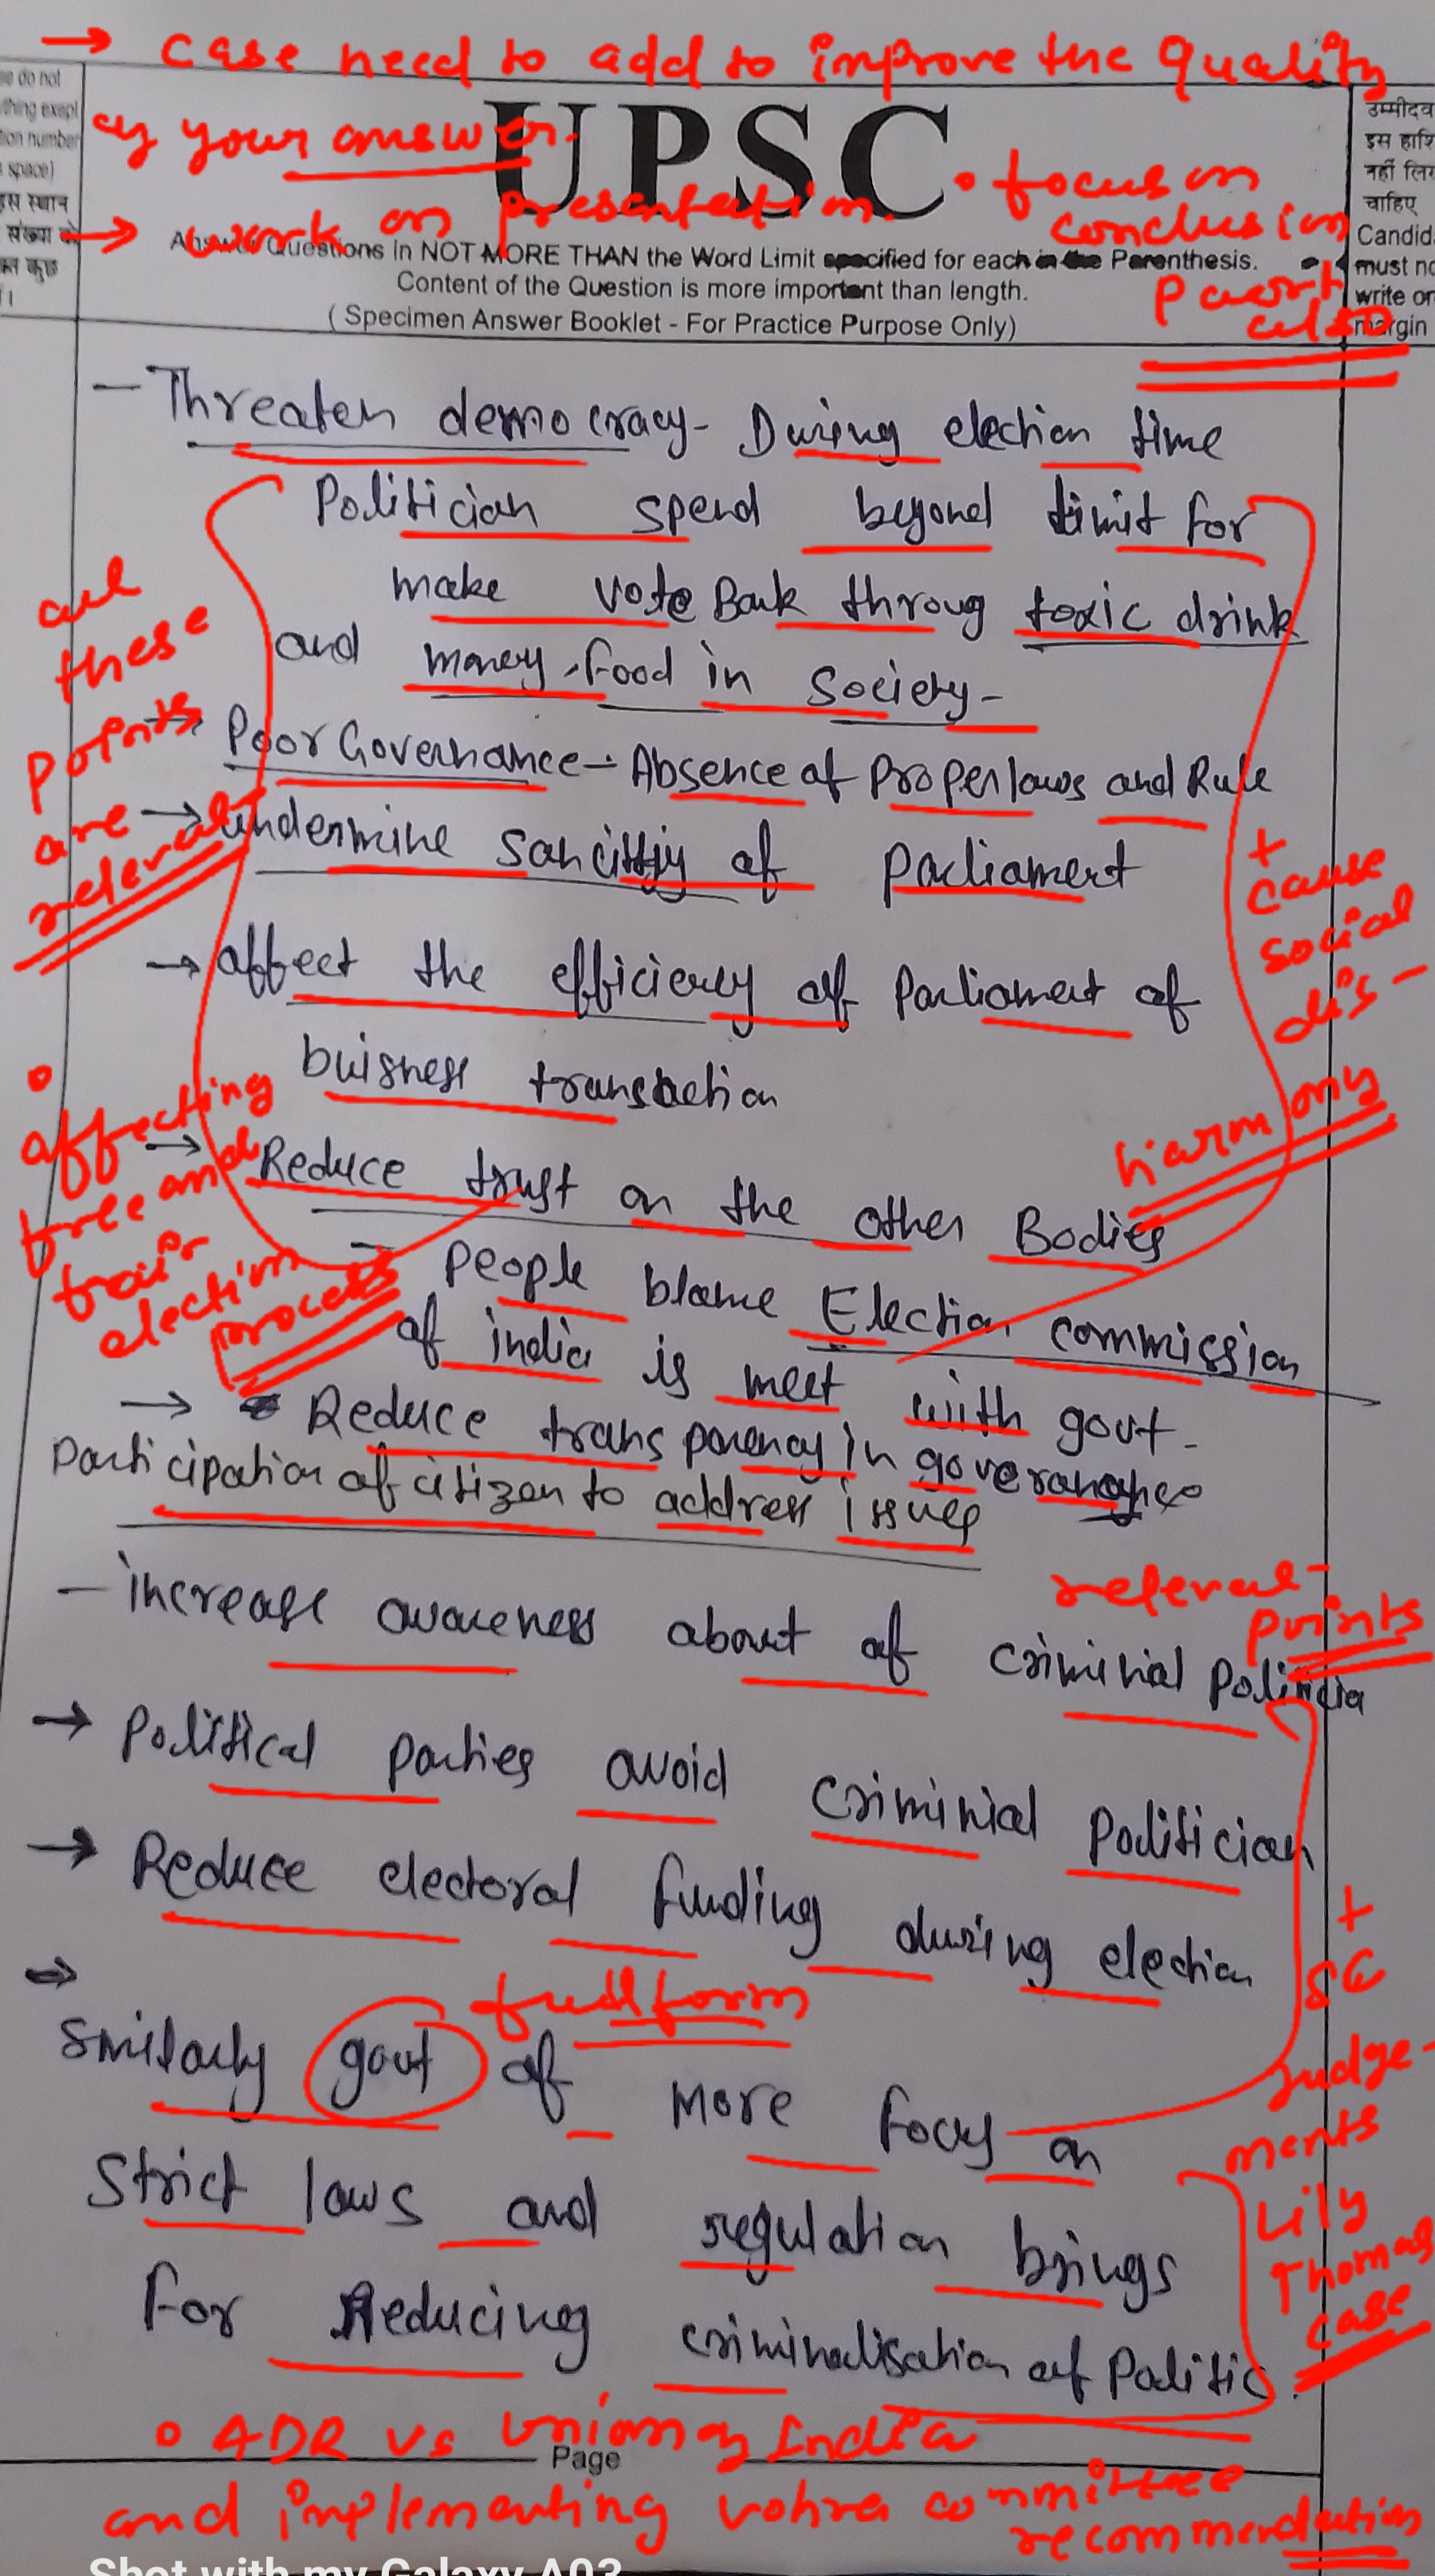 → case need to add to improve the quality
of your answer.
→ work on presentation.
• focus on
conclusion
part
also
UPSC
Answer Questions in NOT MORE THAN the Word Limit specified for each in the Parenthesis.
Content of the Question is more important than length.
( Specimen Answer Booklet - For Practice Purpose Only)
se do not
thing exept
tion number
space)
इस स्थान
संख्या के
क्त कुछ
उम्मीदव
इस हाशि
नहीं लिख
चाहिए
Candid
must no
write on
margin
- Threaten democracy - During election time
Politician spend beyond limit for
make vote Bank throug toxic drink
and money, food in society -
→ Poor Governance - Absence of Proper laws and Rule
→ undermine sancitity of Parliament
→ affect the efficiency of Parliament of
buisness transaction
→ Reduce trust on the other Bodies
- People blame Election commission
of india is meet with govt -
→ Reduce transparency in goverance
all
these
points
are
relevant
+
cause
social
dis-
harmony
• affecting
free and
fair
election
process
Participation of citizen to address issues
- increase awareness about of criminial
→ Political parties avoid criminial Politician
→ Reduce electoral funding during election
→
Smilarly govt of more focus on
Strict laws and regulation brings
For Reducing criminalisation of Politic.
full form
points
+
SC
Judge-
ments
Lily
Thomas
case
• ADR vs Union of India
and implementing vohra committee
recommendation
Page
Shot with my Galaxy A03